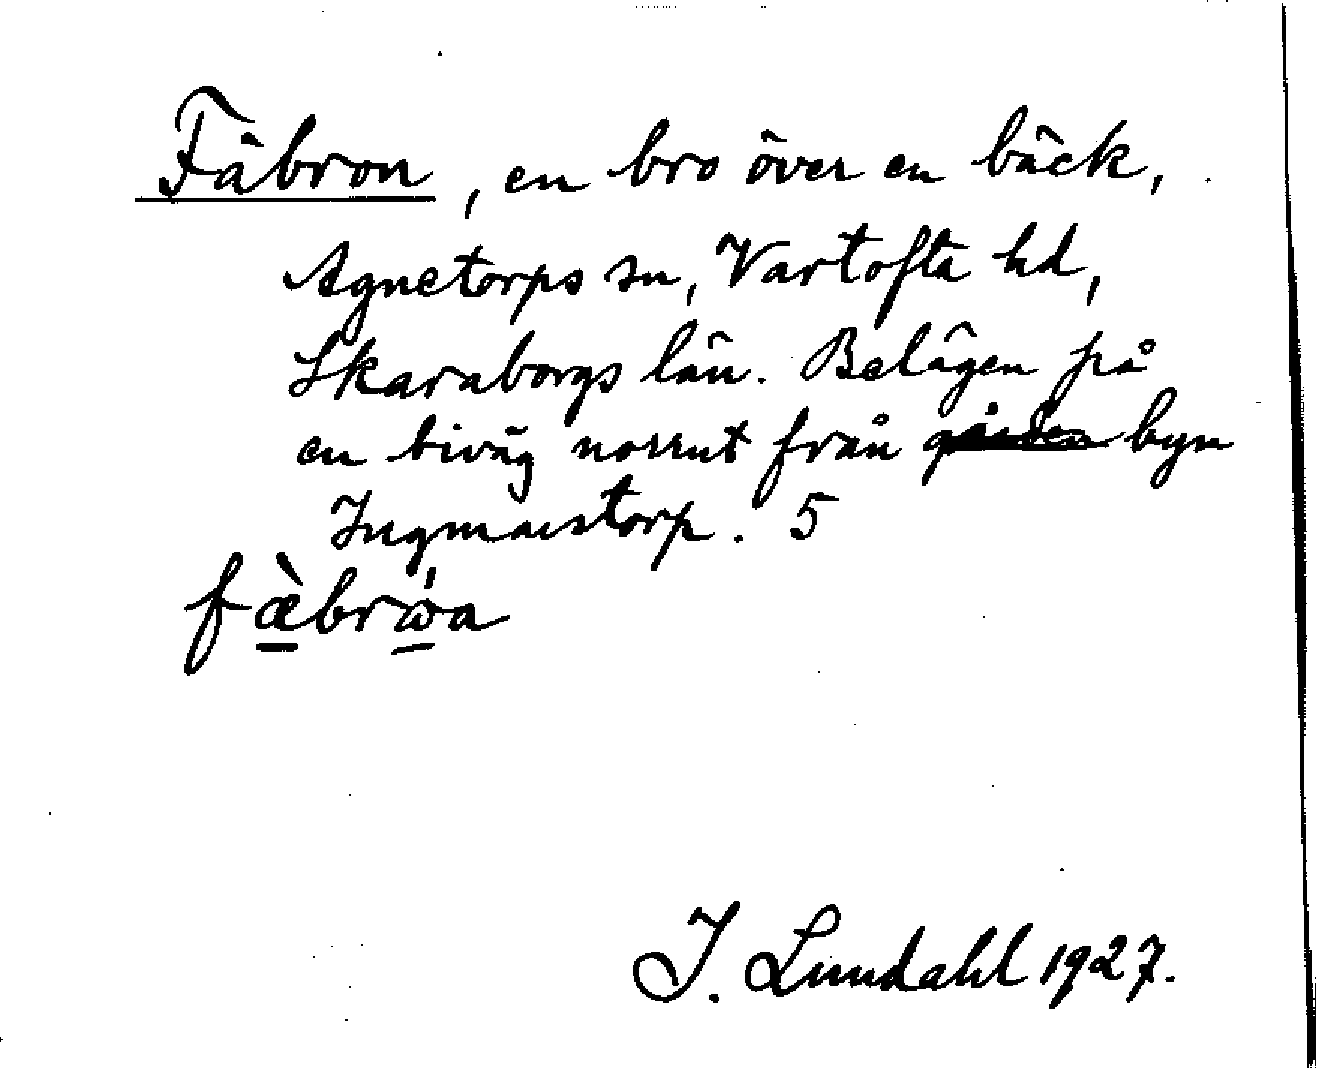 Fäbron, en bro över en bäck,
Agnetorps sn, Vartofta hd,
Skaraborgs län. Belägen på
en biväg norrut från gården byn
Ingmarstorp. 5
fæ̀brωa
I. Lundahl 1927.